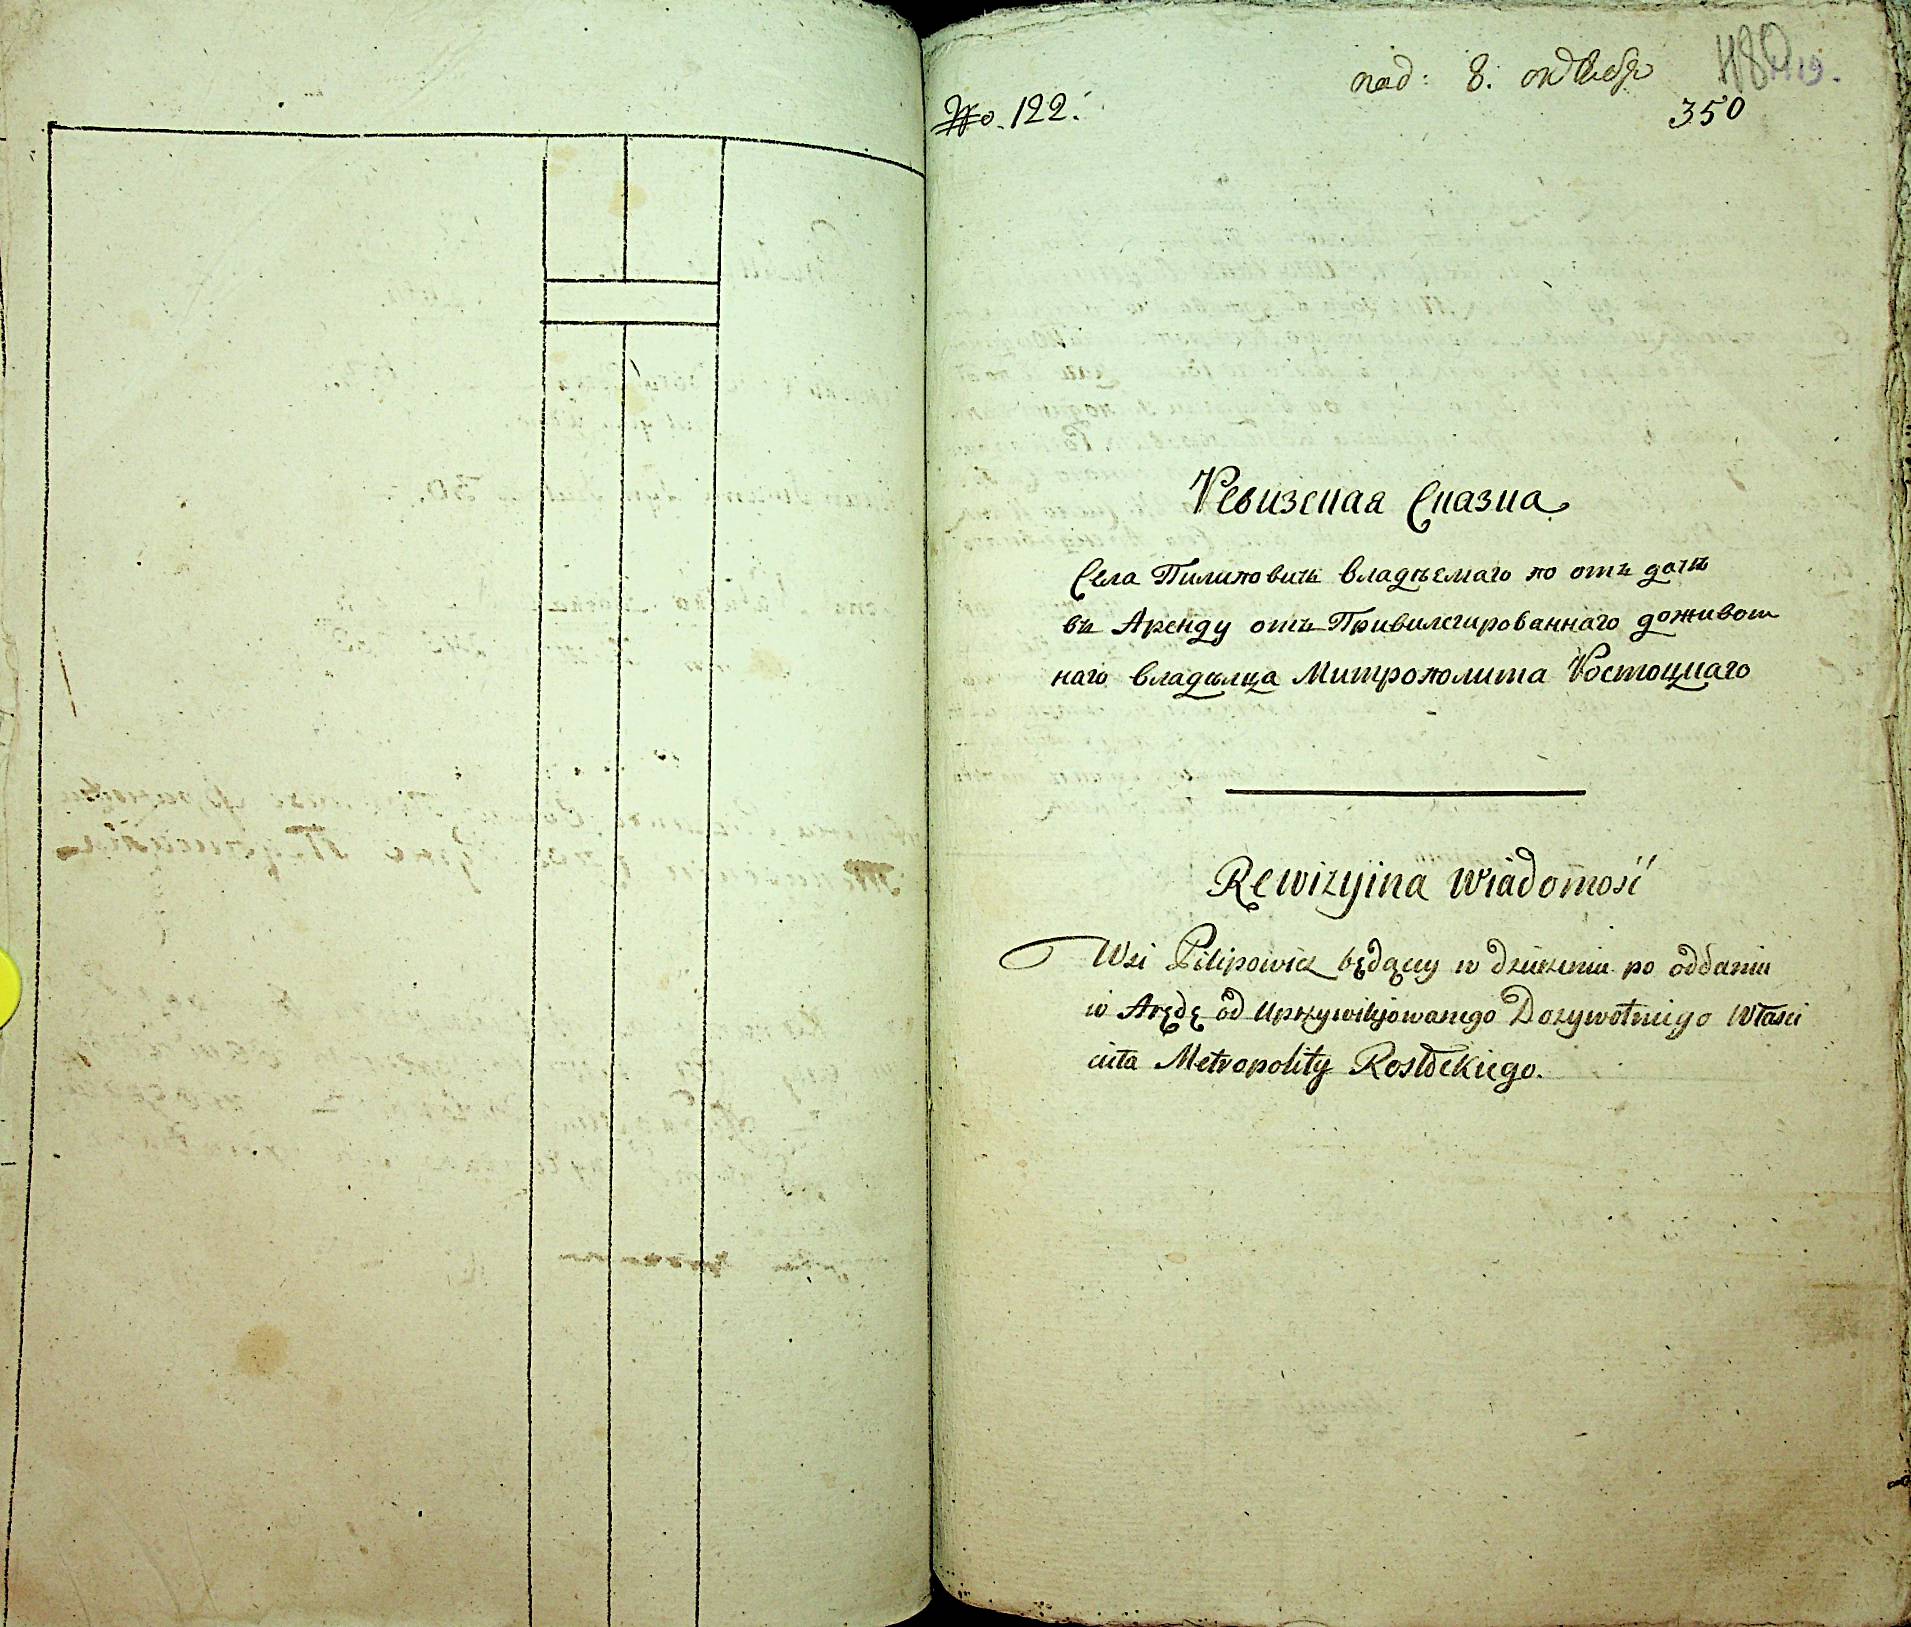 под: 8. октября
No. 122.
350
Ревизская Сказка
Села Пилиповичь владѣемаго по отъ дачѣ
въ Аренду отъ Привилегированнаго доживот
наго владѣлца Митрополита Ростоцкаго
Rewizyina Wiadomość
Wsi Pilipowicz będącey w dzierżeniu po oddaniu
w Arędę od Uprzywilejowanego Dożywotniego Właści
ciela Metropolity Rostockiego.